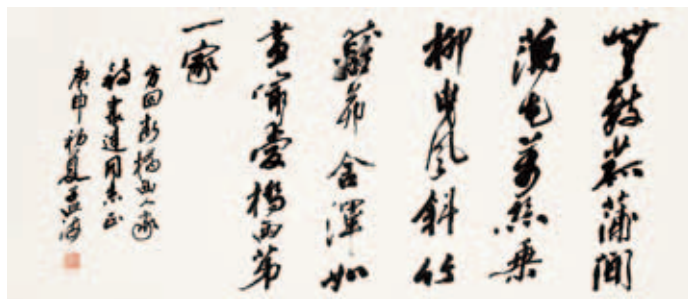 無數菰蒲間
藕花萬絲垂
柳曳風斜竹
籬茆舍渾如
畫最愛橋西第
一家
方回斷橋西人家
詩 同志正
庚申初夏孟海